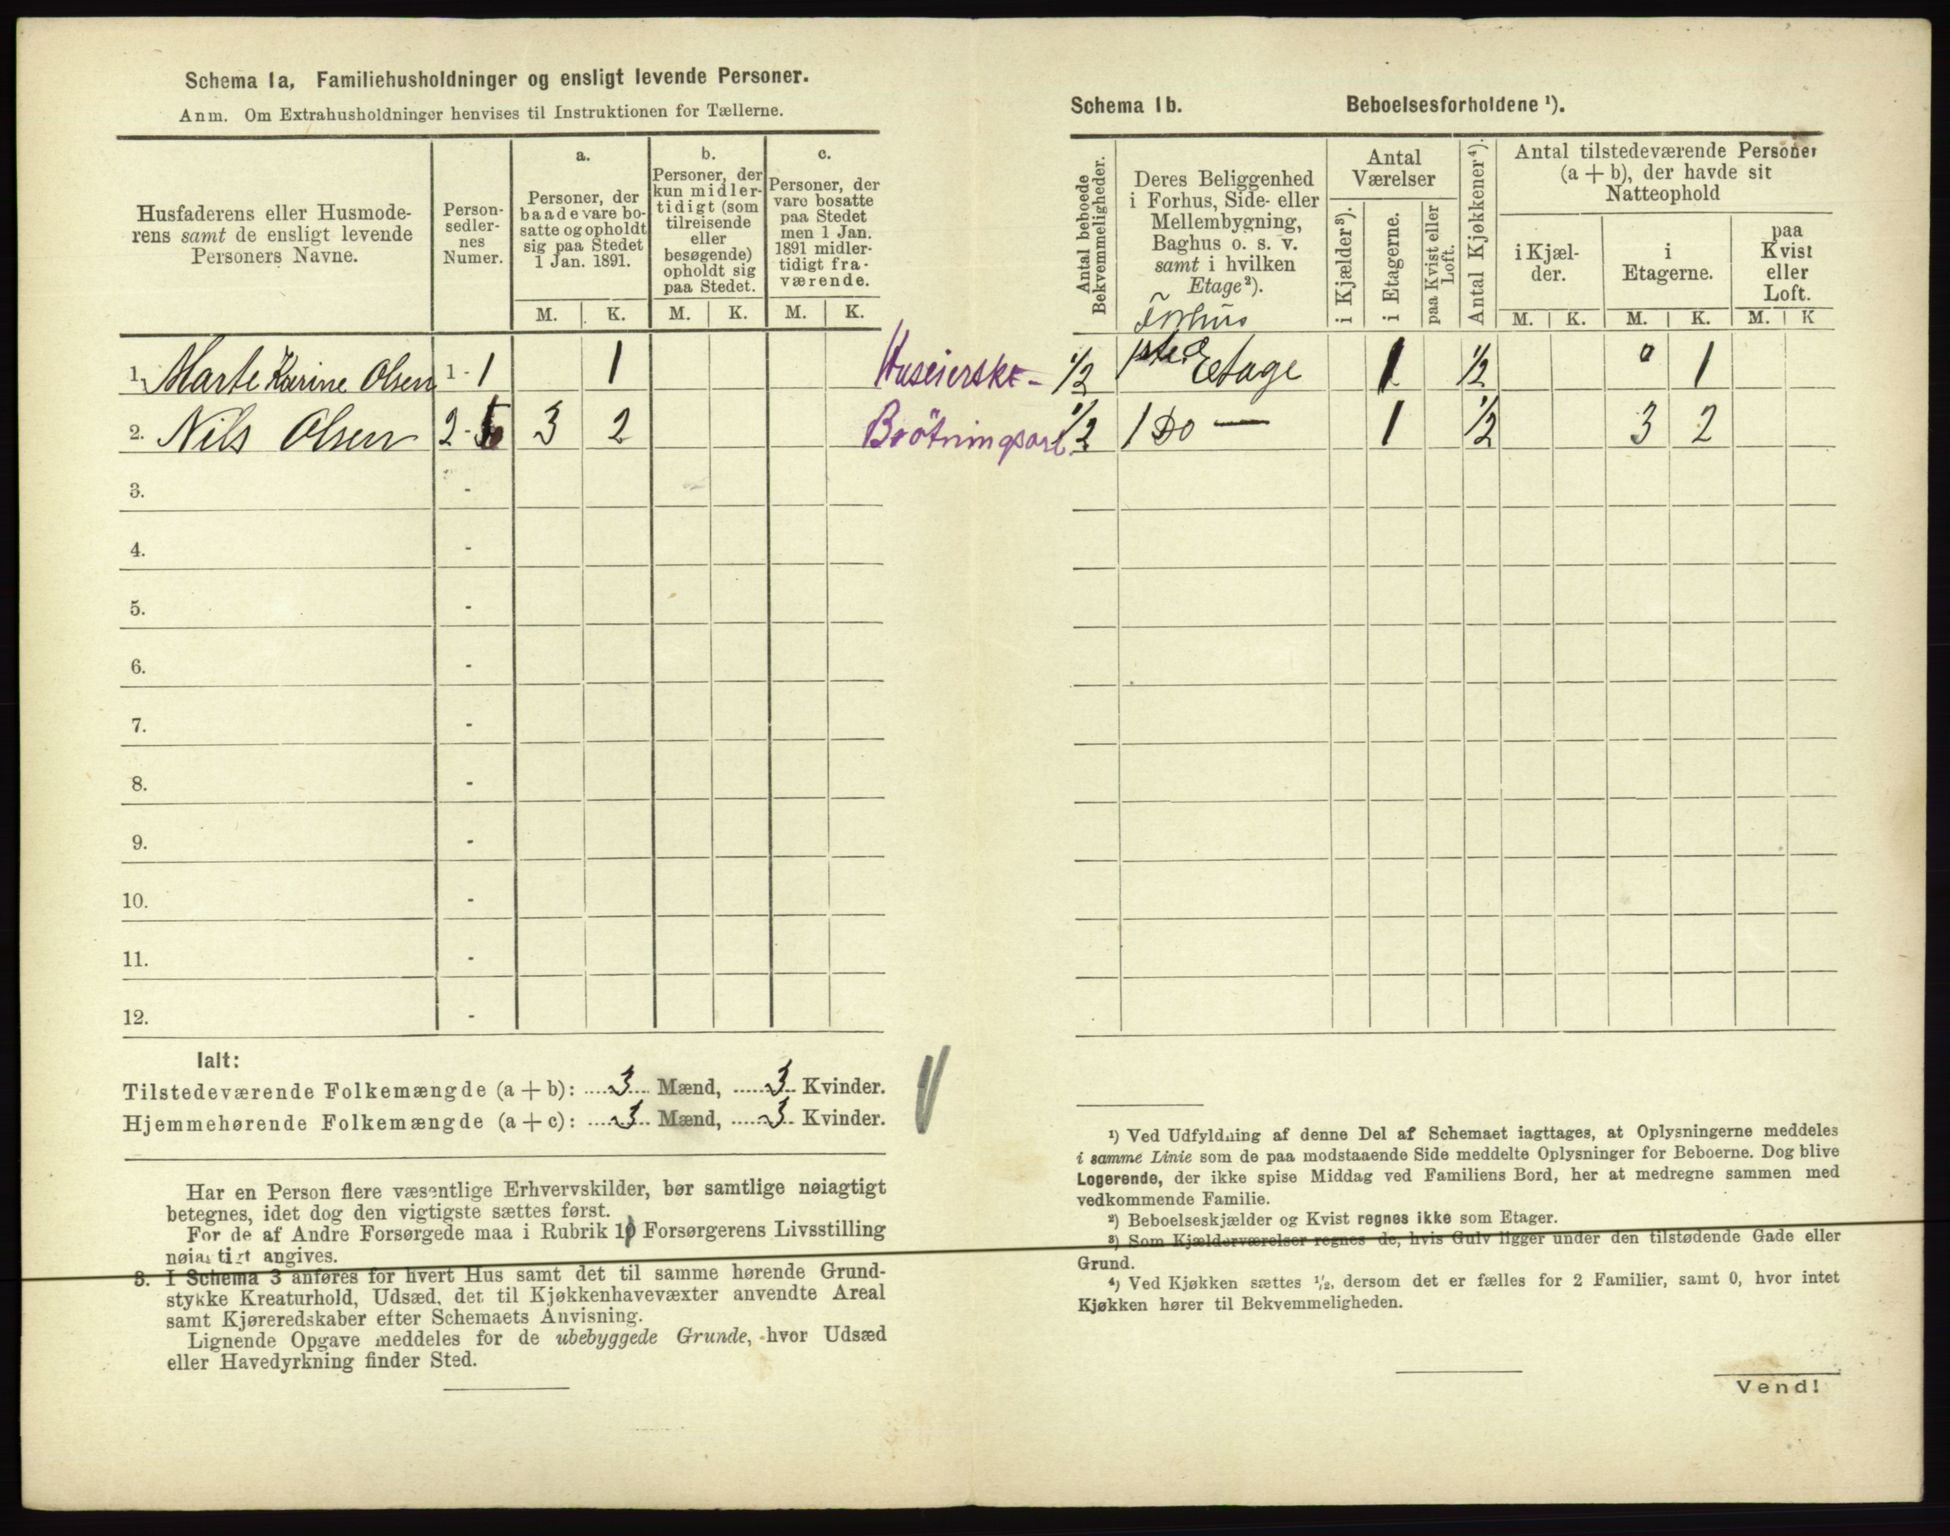 Schema 1a, Familiehusholdninger og ensligt levende Personer.
Anm. Om Extrahusholdninger henvises til Instruktionen for Tællerne.
Husfaderens eller Husmode-
rens samt de ensligt levende
Personers Navne.
Person-
sedler-
nes
Numer.
a.
Personer, der
baade vare bo-
satte og opholdt
sig paa Stedet
1 Jan. 1891.
b.
Personer, der
kun midler-
tidigt (som
tilreisende
eller
besøgende)
opholdt sig
paa Stedet.
c.
Personer, der
vare bosatte
paa Stedet
men 1 Jan.
1891 midler-
tidigt fra-
værende.
M. K. M. K. M. K.
1. Marte Karine Olsen 1 - 1 1 Huseierske -
2. Nils Olsen 2 - 3 2 Brötningsarb.
3. -
4. -
5. -
6. -
7. -
8. -
9. -
10. -
11. -
12. -
Ialt:
Tilstedeværende Folkemængde (a + b): 3 Mænd, 3 Kvinder.
Hjemmehørende Folkemængde (a + c): 3 Mænd, 3 Kvinder.
Har en Person flere væsentlige Erhvervskilder, bør samtlige nøiagtigt
betegnes, idet dog den vigtigste sættes først.
For de af Andre Forsørgede maa i Rubrik 10 Forsørgerens Livsstilling
nøiagtigt angives.
3. I Schema 3 anføres for hvert Hus samt det til samme hørende Grund-
stykke Kreaturhold, Udsæd, det til Kjøkkenhavevæxter anvendte Areal
samt Kjøreredskaber efter Schemaets Anvisning.
Lignende Opgave meddeles for de ubebyggede Grunde, hvor Udsæd
eller Havedyrkning finder Sted.
Schema 1b. Beboelsesforholdene ¹).
Antal beboede
Bekvemmeligheder.
Deres Beliggenhed
i Forhus, Side- eller
Mellembygning,
Baghus o. s. v.
samt i hvilken
Etage²).
Antal
Værelser
i Kjælder³).
i Etagerne.
paa Kvist eller
Loft.
Antal Kjøkkener⁴).
Antal tilstedeværende Personer
(a + b), der havde sit
Natteophold
i Kjæl-
der.
i
Etagerne.
paa
Kvist
eller
Loft.
M. K. M. K. M. K
Forhus
1/2 1sted Etage 1 1/2 0 1
1/2 1 Do — 1 1/2 3 2
¹) Ved Udfyldning af denne Del af Schemaet iagttages, at Oplysningerne meddeles
i samme Linie som de paa modstaaende Side meddelte Oplysninger for Beboerne. Dog blive
Logerende, der ikke spise Middag ved Familiens Bord, her at medregne sammen med
vedkommende Familie.
²) Beboelseskjælder og Kvist regnes ikke som Etager.
³) Som Kjælderværelser regnes de, hvis Gulv ligger under den tilstødende Gade eller
Grund.
⁴) Ved Kjøkken sættes ½, dersom det er fælles for 2 Familier, samt 0, hvor intet
Kjøkken hører til Bekvemmeligheden.
Vend!